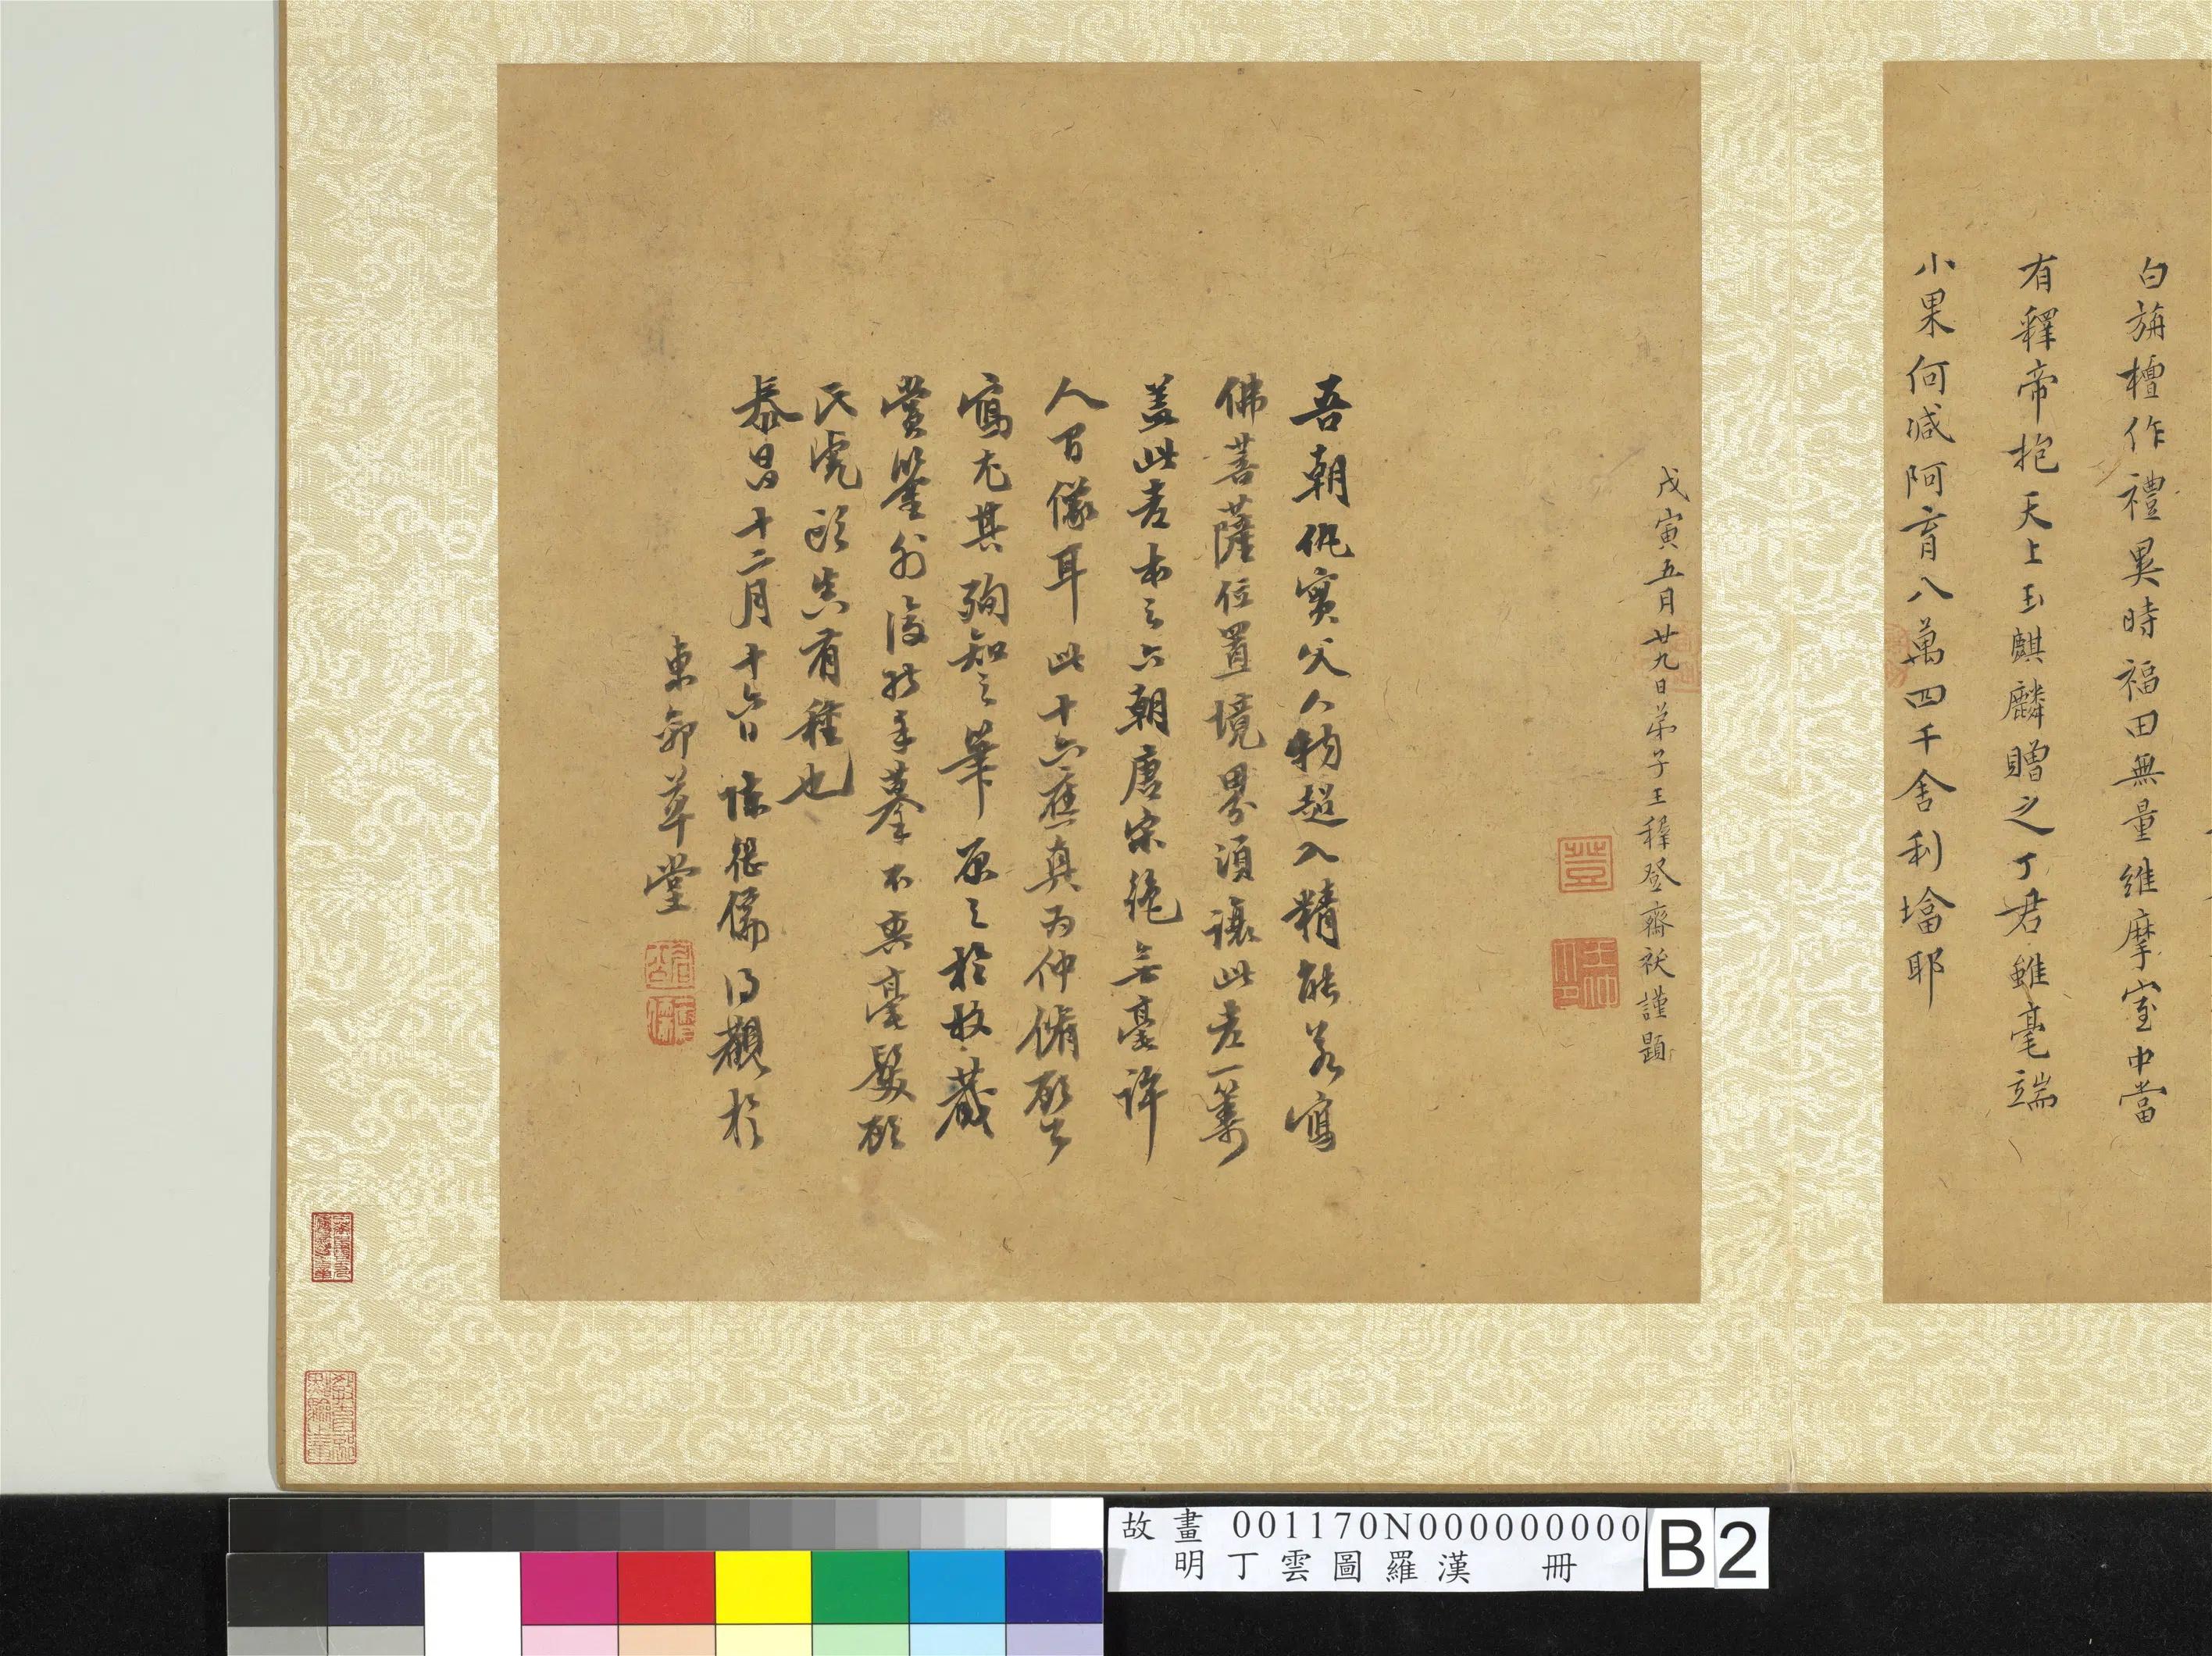 白旃檀作禮異時福田無量維摩室中當
有釋帝抱天上玉麒麟贈之丁君雖毫端
小果何减阿育八萬四千舍利墖耶
戊寅五月廿九日弟子王穉登齋祓謹題
吾朝仇實父人物超入精能若寫
佛菩薩位置境界須讓此老一籌
盖此老本之六朝唐宋絕無毫許
人間像耳此十六應真為仲脩
寫尤其殉知之筆原之於收藏
賞鑒別後於手摹不爽毫髮
氏虎頭真有種也
泰昌十二月十六日陳繼儒得觀於
東郭草堂
故畫 001170N000000000
明丁雲圖羅漢 冊
B2